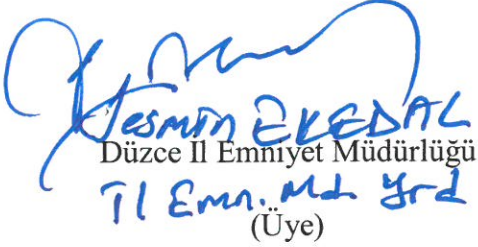 Yesmin EKEDAL
Düzce Il Emniyet Müdürlüğü
Il Emn. Md. Yrd
(Üye)